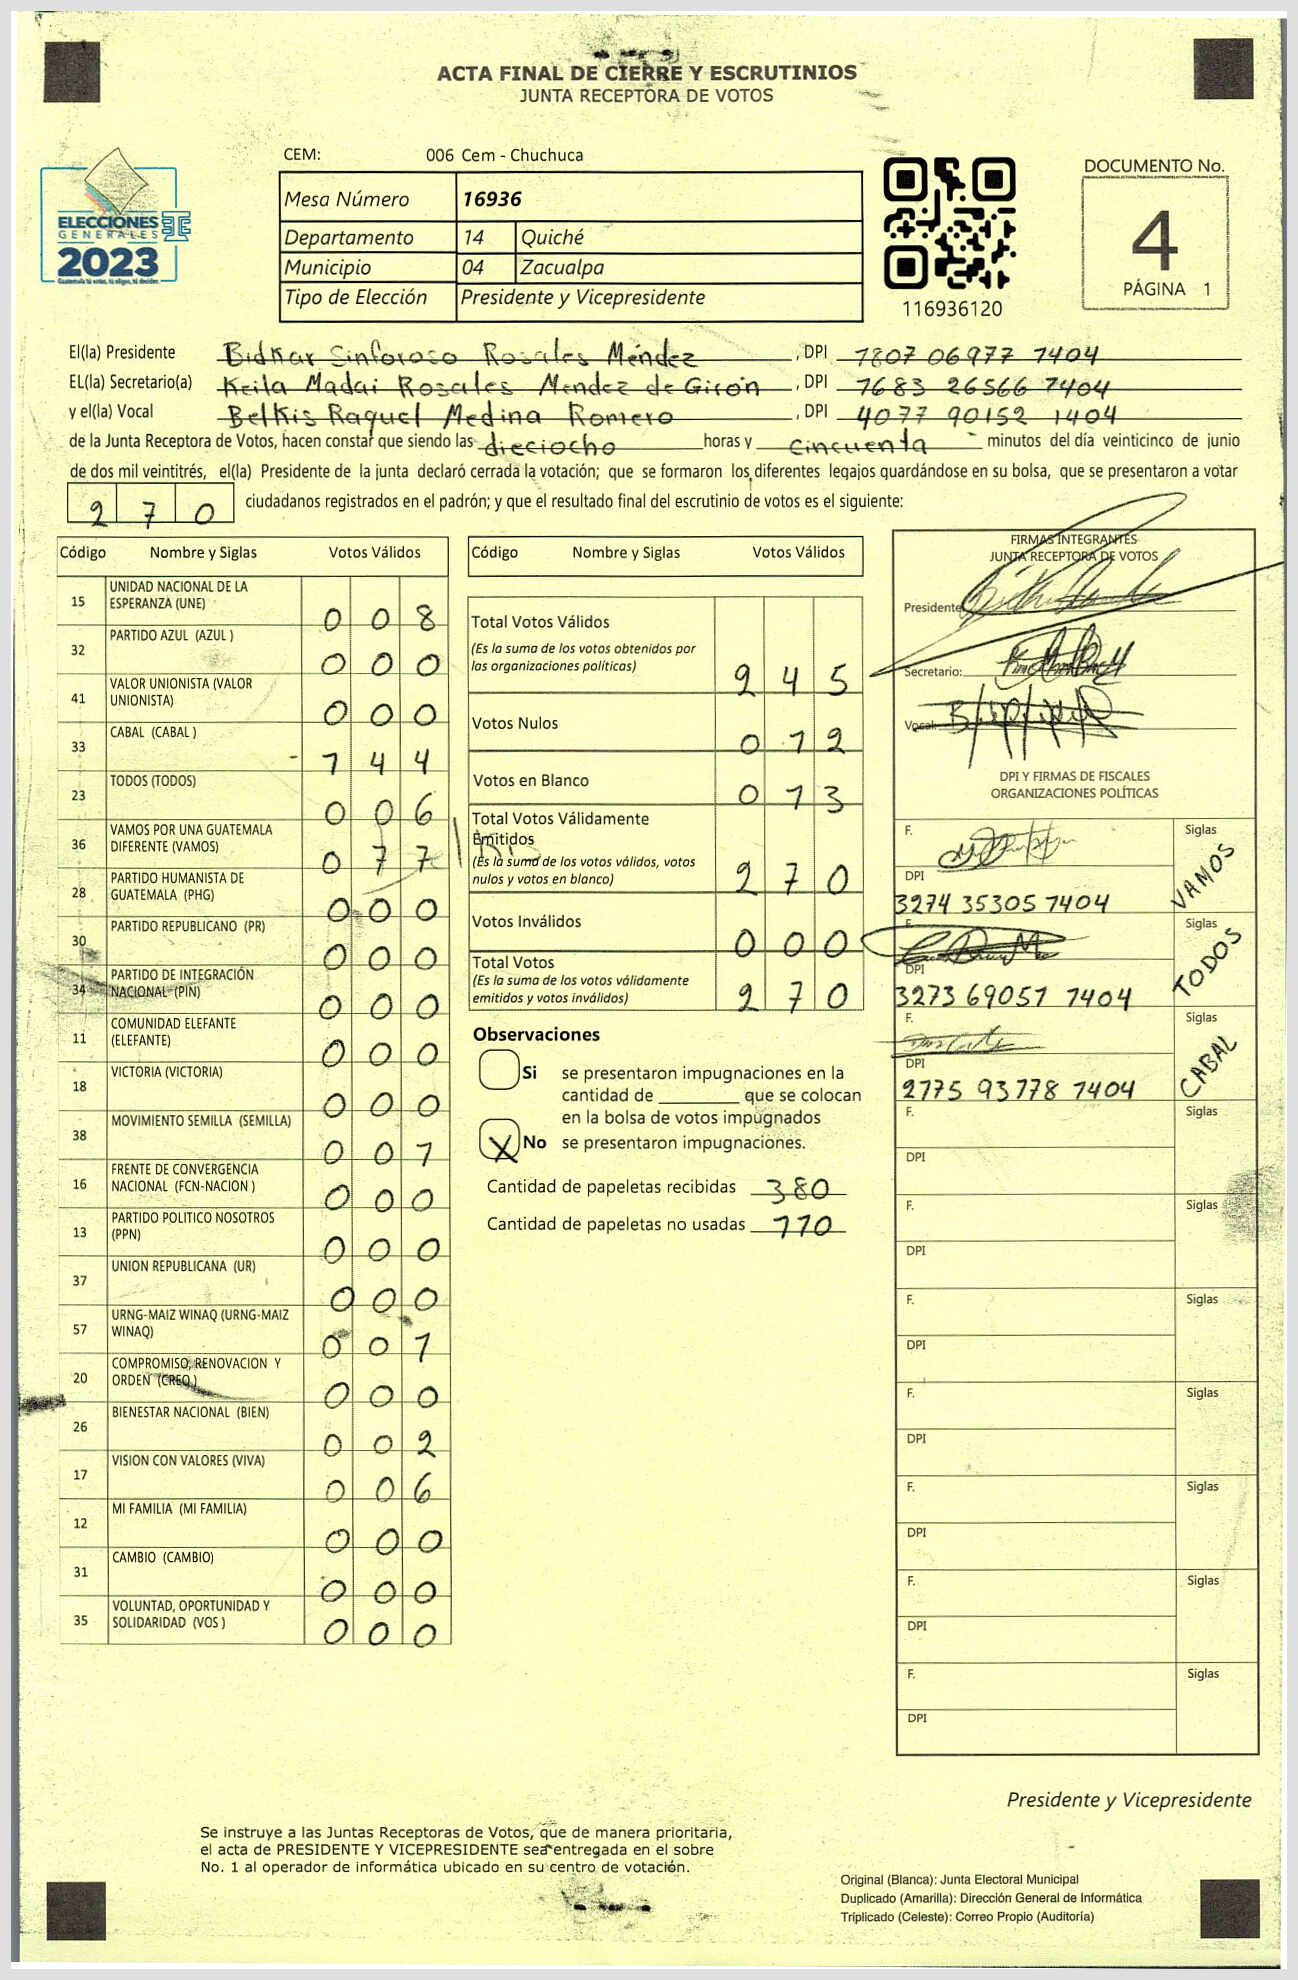 ACTA FINAL DE CIERRE Y ESCRUTINIOS
JUNTA RECEPTORA DE VOTOS
CEM: 006 Cem - Chuchuca
ELECCIONES
GENERALES
2023
Mesa Número 16936
Departamento 14 Quiché
Municipio 04 Zacualpa
Tipo de Elección Presidente y Vicepresidente
116936120
DOCUMENTO No.
4
PÁGINA 1
El(la) Presidente Bidkar Sinforoso Rosales Méndez , DPI 1807 06977 1404
EL(la) Secretario(a) Keila Madai Rosales Mendez de Girón , DPI 1683 26566 1404
y el(la) Vocal Belkis Raquel Medina Romero , DPI 4077 90152 1404
de la Junta Receptora de Votos, hacen constar que siendo las dieciocho horas y cincuenta minutos del día veinticinco de junio
de dos mil veintitrés, el(la) Presidente de la junta declaró cerrada la votación; que se formaron los diferentes legajos guardándose en su bolsa, que se presentaron a votar
270 ciudadanos registrados en el padrón; y que el resultado final del escrutinio de votos es el siguiente:
Código Nombre y Siglas Votos Válidos
15 UNIDAD NACIONAL DE LA ESPERANZA (UNE) 008
32 PARTIDO AZUL (AZUL ) 000
41 VALOR UNIONISTA (VALOR UNIONISTA) 000
33 CABAL (CABAL ) 144
23 TODOS (TODOS) 006
36 VAMOS POR UNA GUATEMALA DIFERENTE (VAMOS) 077
28 PARTIDO HUMANISTA DE GUATEMALA (PHG) 000
30 PARTIDO REPUBLICANO (PR) 000
34 PARTIDO DE INTEGRACIÓN NACIONAL (PIN) 000
11 COMUNIDAD ELEFANTE (ELEFANTE) 000
18 VICTORIA (VICTORIA) 000
38 MOVIMIENTO SEMILLA (SEMILLA) 001
16 FRENTE DE CONVERGENCIA NACIONAL (FCN-NACION ) 000
13 PARTIDO POLITICO NOSOTROS (PPN) 000
37 UNION REPUBLICANA (UR) 000
57 URNG-MAIZ WINAQ (URNG-MAIZ WINAQ) 001
20 COMPROMISO, RENOVACION Y ORDEN (CREO ) 000
26 BIENESTAR NACIONAL (BIEN) 002
17 VISION CON VALORES (VIVA) 006
12 MI FAMILIA (MI FAMILIA) 000
31 CAMBIO (CAMBIO) 000
35 VOLUNTAD, OPORTUNIDAD Y SOLIDARIDAD (VOS ) 000
Código Nombre y Siglas Votos Válidos
Total Votos Válidos 245
(Es la suma de los votos obtenidos por
las organizaciones políticas)
Votos Nulos 012
Votos en Blanco 013
Total Votos Válidamente
Emitidos
(Es la suma de los votos válidos, votos
nulos y votos en blanco) 270
Votos Inválidos 000
Total Votos
(Es la suma de los votos válidamente
emitidos y votos inválidos) 270
Observaciones
Si se presentaron impugnaciones en la
cantidad de ________ que se colocan
en la bolsa de votos impugnados
X No se presentaron impugnaciones.
Cantidad de papeletas recibidas 380
Cantidad de papeletas no usadas 110
FIRMAS INTEGRANTES
JUNTA RECEPTORA DE VOTOS
Presidente
Secretario:
Vocal:
DPI Y FIRMAS DE FISCALES
ORGANIZACIONES POLÍTICAS
F. Siglas VAMOS
DPI
3274 35305 1404
F. Siglas TODOS
DPI
3273 69051 1404
F. Siglas CABAL
DPI
2775 93778 1404
F. Siglas
DPI
F. Siglas
DPI
F. Siglas
DPI
F. Siglas
DPI
F. Siglas
DPI
F. Siglas
DPI
F. Siglas
DPI
Presidente y Vicepresidente
Se instruye a las Juntas Receptoras de Votos, que de manera prioritaria,
el acta de PRESIDENTE Y VICEPRESIDENTE sea entregada en el sobre
No. 1 al operador de informática ubicado en su centro de votación.
Original (Blanca): Junta Electoral Municipal
Duplicado (Amarilla): Dirección General de Informática
Triplicado (Celeste): Correo Propio (Auditoría)